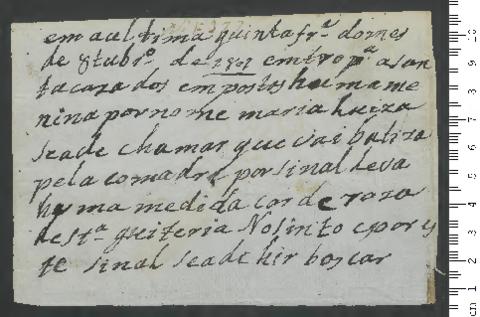 em a cultima quinta fr.ª do mes
de 8tubr.º de 1821 em trou p.ª a San
ta caza dos em postos huma me
nina por nome maria Luiza
se a de chamar que vai batiza
pela comadre por sinal Leva
hu ma medida cor de roza
de st.ª quiteria No sinto e por es
te sinal se a de hir boscar
10
9
8
7
6
5
4
3
2
1
cm